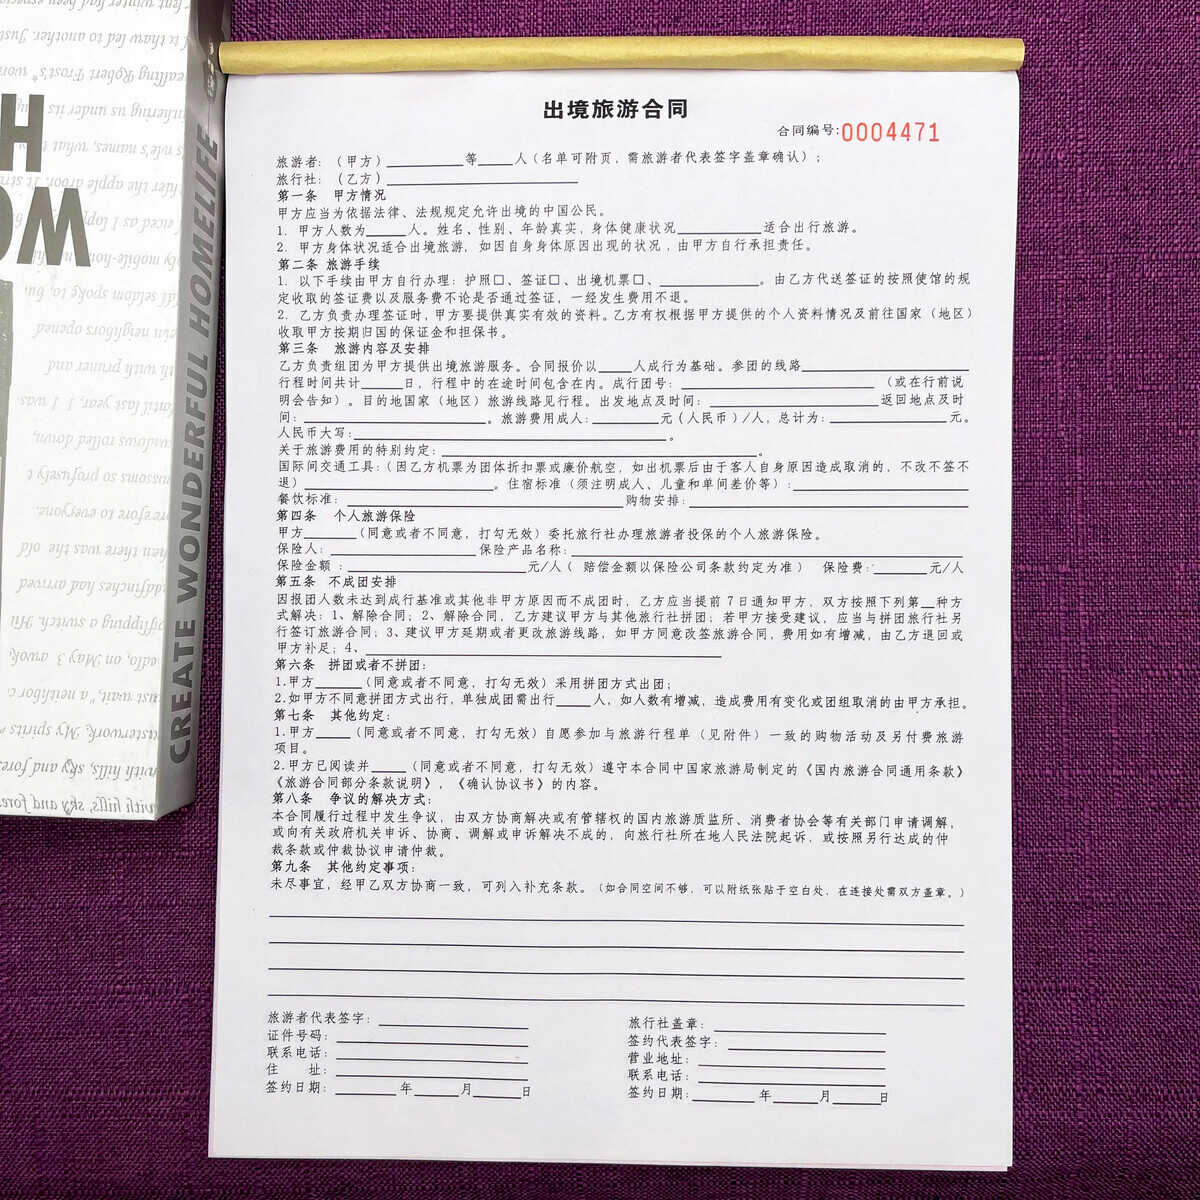 出境旅游合同
合同编号:0004471
旅游者:（甲方）________等____人（名单可附页，需旅游者代表签字盖章确认）;
旅行社:（乙方）____________________
第一条 甲方情况
甲方应当为依据法律、法规规定允许出境的中国公民。
1. 甲方人数为_____人。姓名、性别、年龄真实，身体健康状况__________适合出行旅游。
2. 甲方身体状况适合出境旅游，如因自身身体原因出现的状况，由甲方自行承担责任。
第二条 旅游手续
1. 以下手续由甲方自行办理: 护照□、签证□、出境机票□、____________。由乙方代送签证的按照使馆的规
定收取的签证费以及服务费不论是否通过签证，一经发生费用不退。
2. 乙方负责办理签证时，甲方要提供真实有效的资料。乙方有权根据甲方提供的个人资料情况及前往国家（地区）
收取甲方按期归国的保证金和担保书。
第三条 旅游内容及安排
乙方负责组团为甲方提供出境旅游服务。合同报价以____人成行为基础。参团的线路____________________
行程时间共计_____日，行程中的在途时间包含在内。成行团号: ______________________（或在行前说
明会告知）。目的地国家（地区）旅游线路见行程。出发地点及时间: ____________________返回地点及时
间: ____________________。旅游费用成人: ________元（人民币）/人，总计为: ____________元。
人民币大写:______________________________。
关于旅游费用的特别约定: ______________________________。
国际间交通工具:（因乙方机票为团体折扣票或廉价航空，如出机票后由于客人自身原因造成取消的，不改不签不
退）____________________。住宿标准（须注明成人、儿童和单间差价等）: ____________________
餐饮标准: ______________________________购物安排: ______________________________
第四条 个人旅游保险
甲方______（同意或者不同意，打勾无效）委托旅行社办理旅游者投保的个人旅游保险。
保险人: __________________保险产品名称: ________________________________________
保险金额: ____________________元/人（ 赔偿金额以保险公司条款约定为准） 保险费:______元/人
第五条 不成团安排
因报团人数未达到成行基准或其他非甲方原因而不成团时，乙方应当提前7日通知甲方，双方按照下列第__种方
式解决: 1、解除合同; 2、解除合同，乙方建议甲方与其他旅行社拼团; 若甲方接受建议，应当与拼团旅行社另
行签订旅游合同; 3、建议甲方延期或者更改旅游线路，如甲方同意改签旅游合同，费用如有增减，由乙方退回或
甲方补足; 4、____________________________________
第六条 拼团或者不拼团:
1.甲方______（同意或者不同意，打勾无效）采用拼团方式出团;
2.如甲方不同意拼团方式出行，单独成团需出行____人，如人数有增减，造成费用有变化或团组取消的由甲方承担。
第七条 其他约定:
1.甲方____（同意或者不同意，打勾无效）自愿参加与旅游行程单（见附件）一致的购物活动及另付费旅游
项目。
2.甲方已阅读并____（同意或者不同意，打勾无效）遵守本合同中国家旅游局制定的《国内旅游合同通用条款》
《旅游合同部分条款说明》，《确认协议书》的内容。
第八条 争议的解决方式:
本合同履行过程中发生争议，由双方协商解决或有管辖权的国内旅游质监所、消费者协会等有关部门申请调解，
或向有关政府机关申诉、协商、调解或申诉解决不成的，向旅行社所在地人民法院起诉，或按照另行达成的仲
裁条款或仲裁协议申请仲裁。
第九条 其他约定事项:
未尽事宜，经甲乙双方协商一致，可列入补充条款。（如合同空间不够，可以附纸张贴于空白处，在连接处需双方盖章。）
旅游者代表签字: ____________________
证件号码: ____________________
联系电话: ____________________
住 址: ____________________
签约日期: ______年____月____日
旅行社盖章: ____________________
签约代表签字: ____________________
营业地址: ____________________
联系电话: ____________________
签约日期: ______年____月____日
CREATE WONDERFUL HOMELIFE